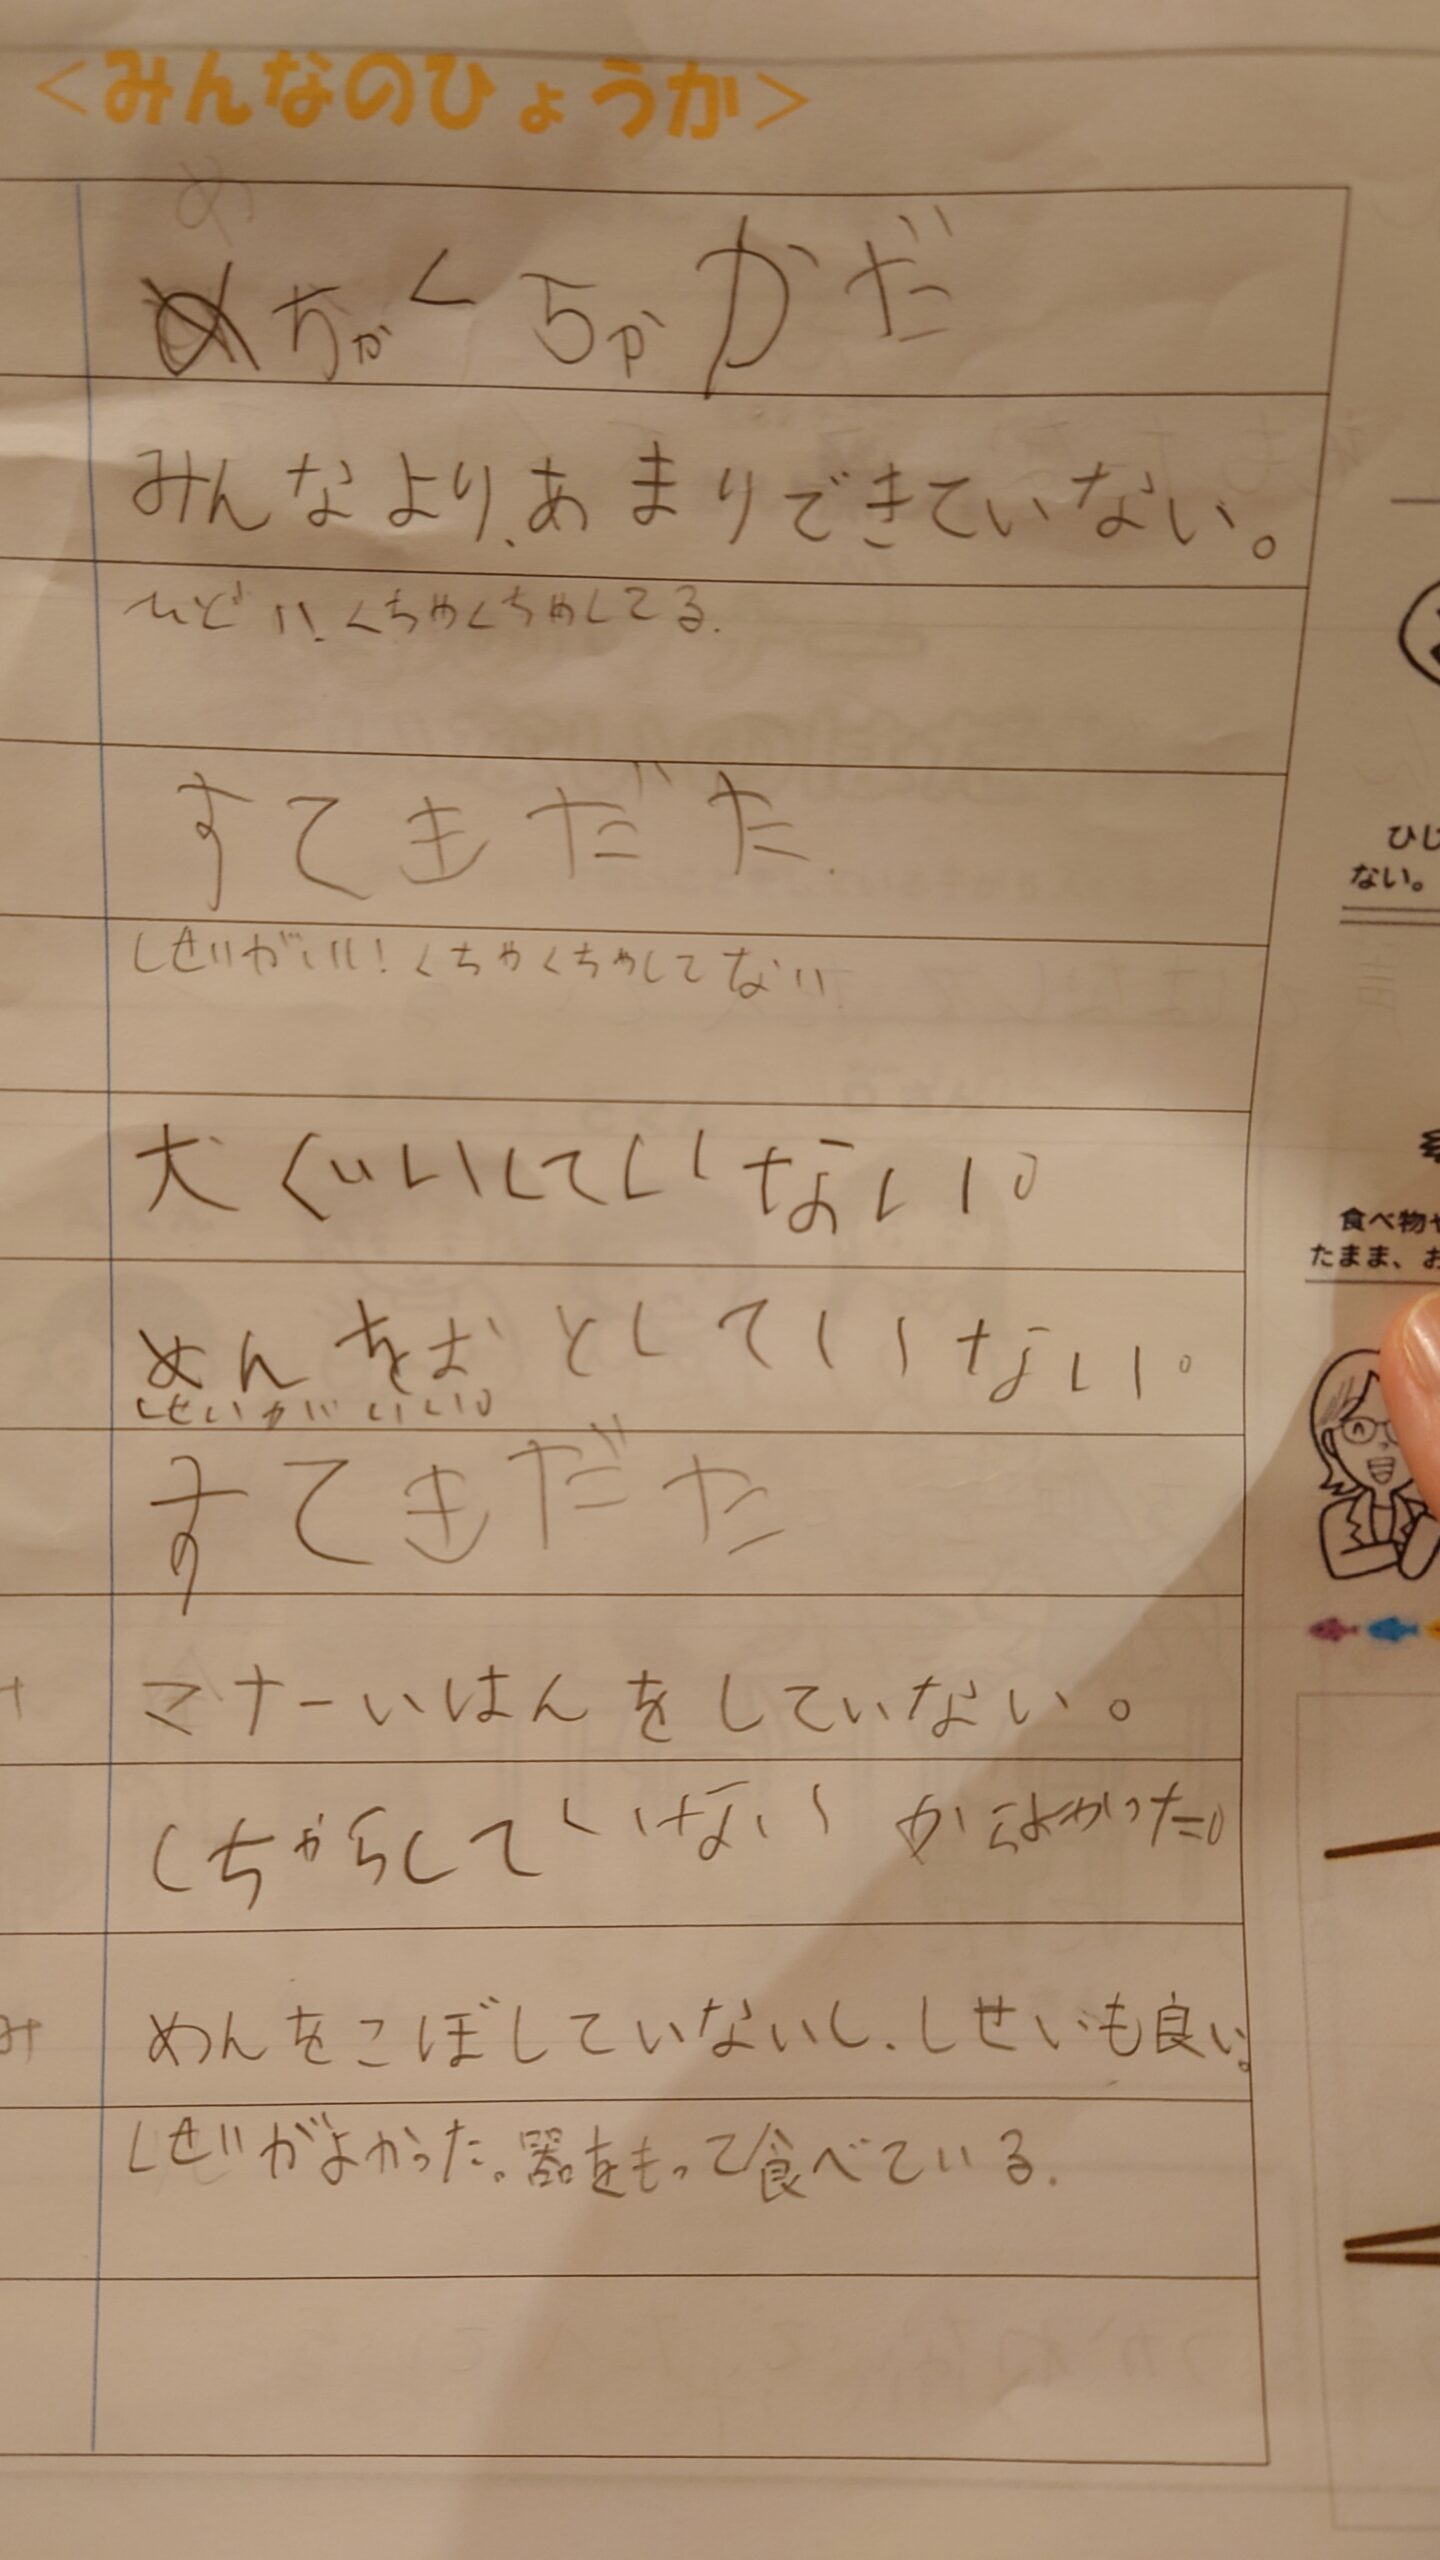 <みんなのひょうか>
めちかくちかかだ
みんなより、あまりできていない。
ひどい!くちゃくちゃしてる.
すてきだた.
しせいがいい!くちゃくちゃしてない
犬ぐいしていない。
めんをおとしていない。
しせいがいい。
すてきだた
マナーいはんをしていない。
していない からよかった。
めんをこぼしていないし、しせいも良い。
しせいがよかった。器をもって食べている.
み
ひじ
ない。
食べ物や
たまま、お